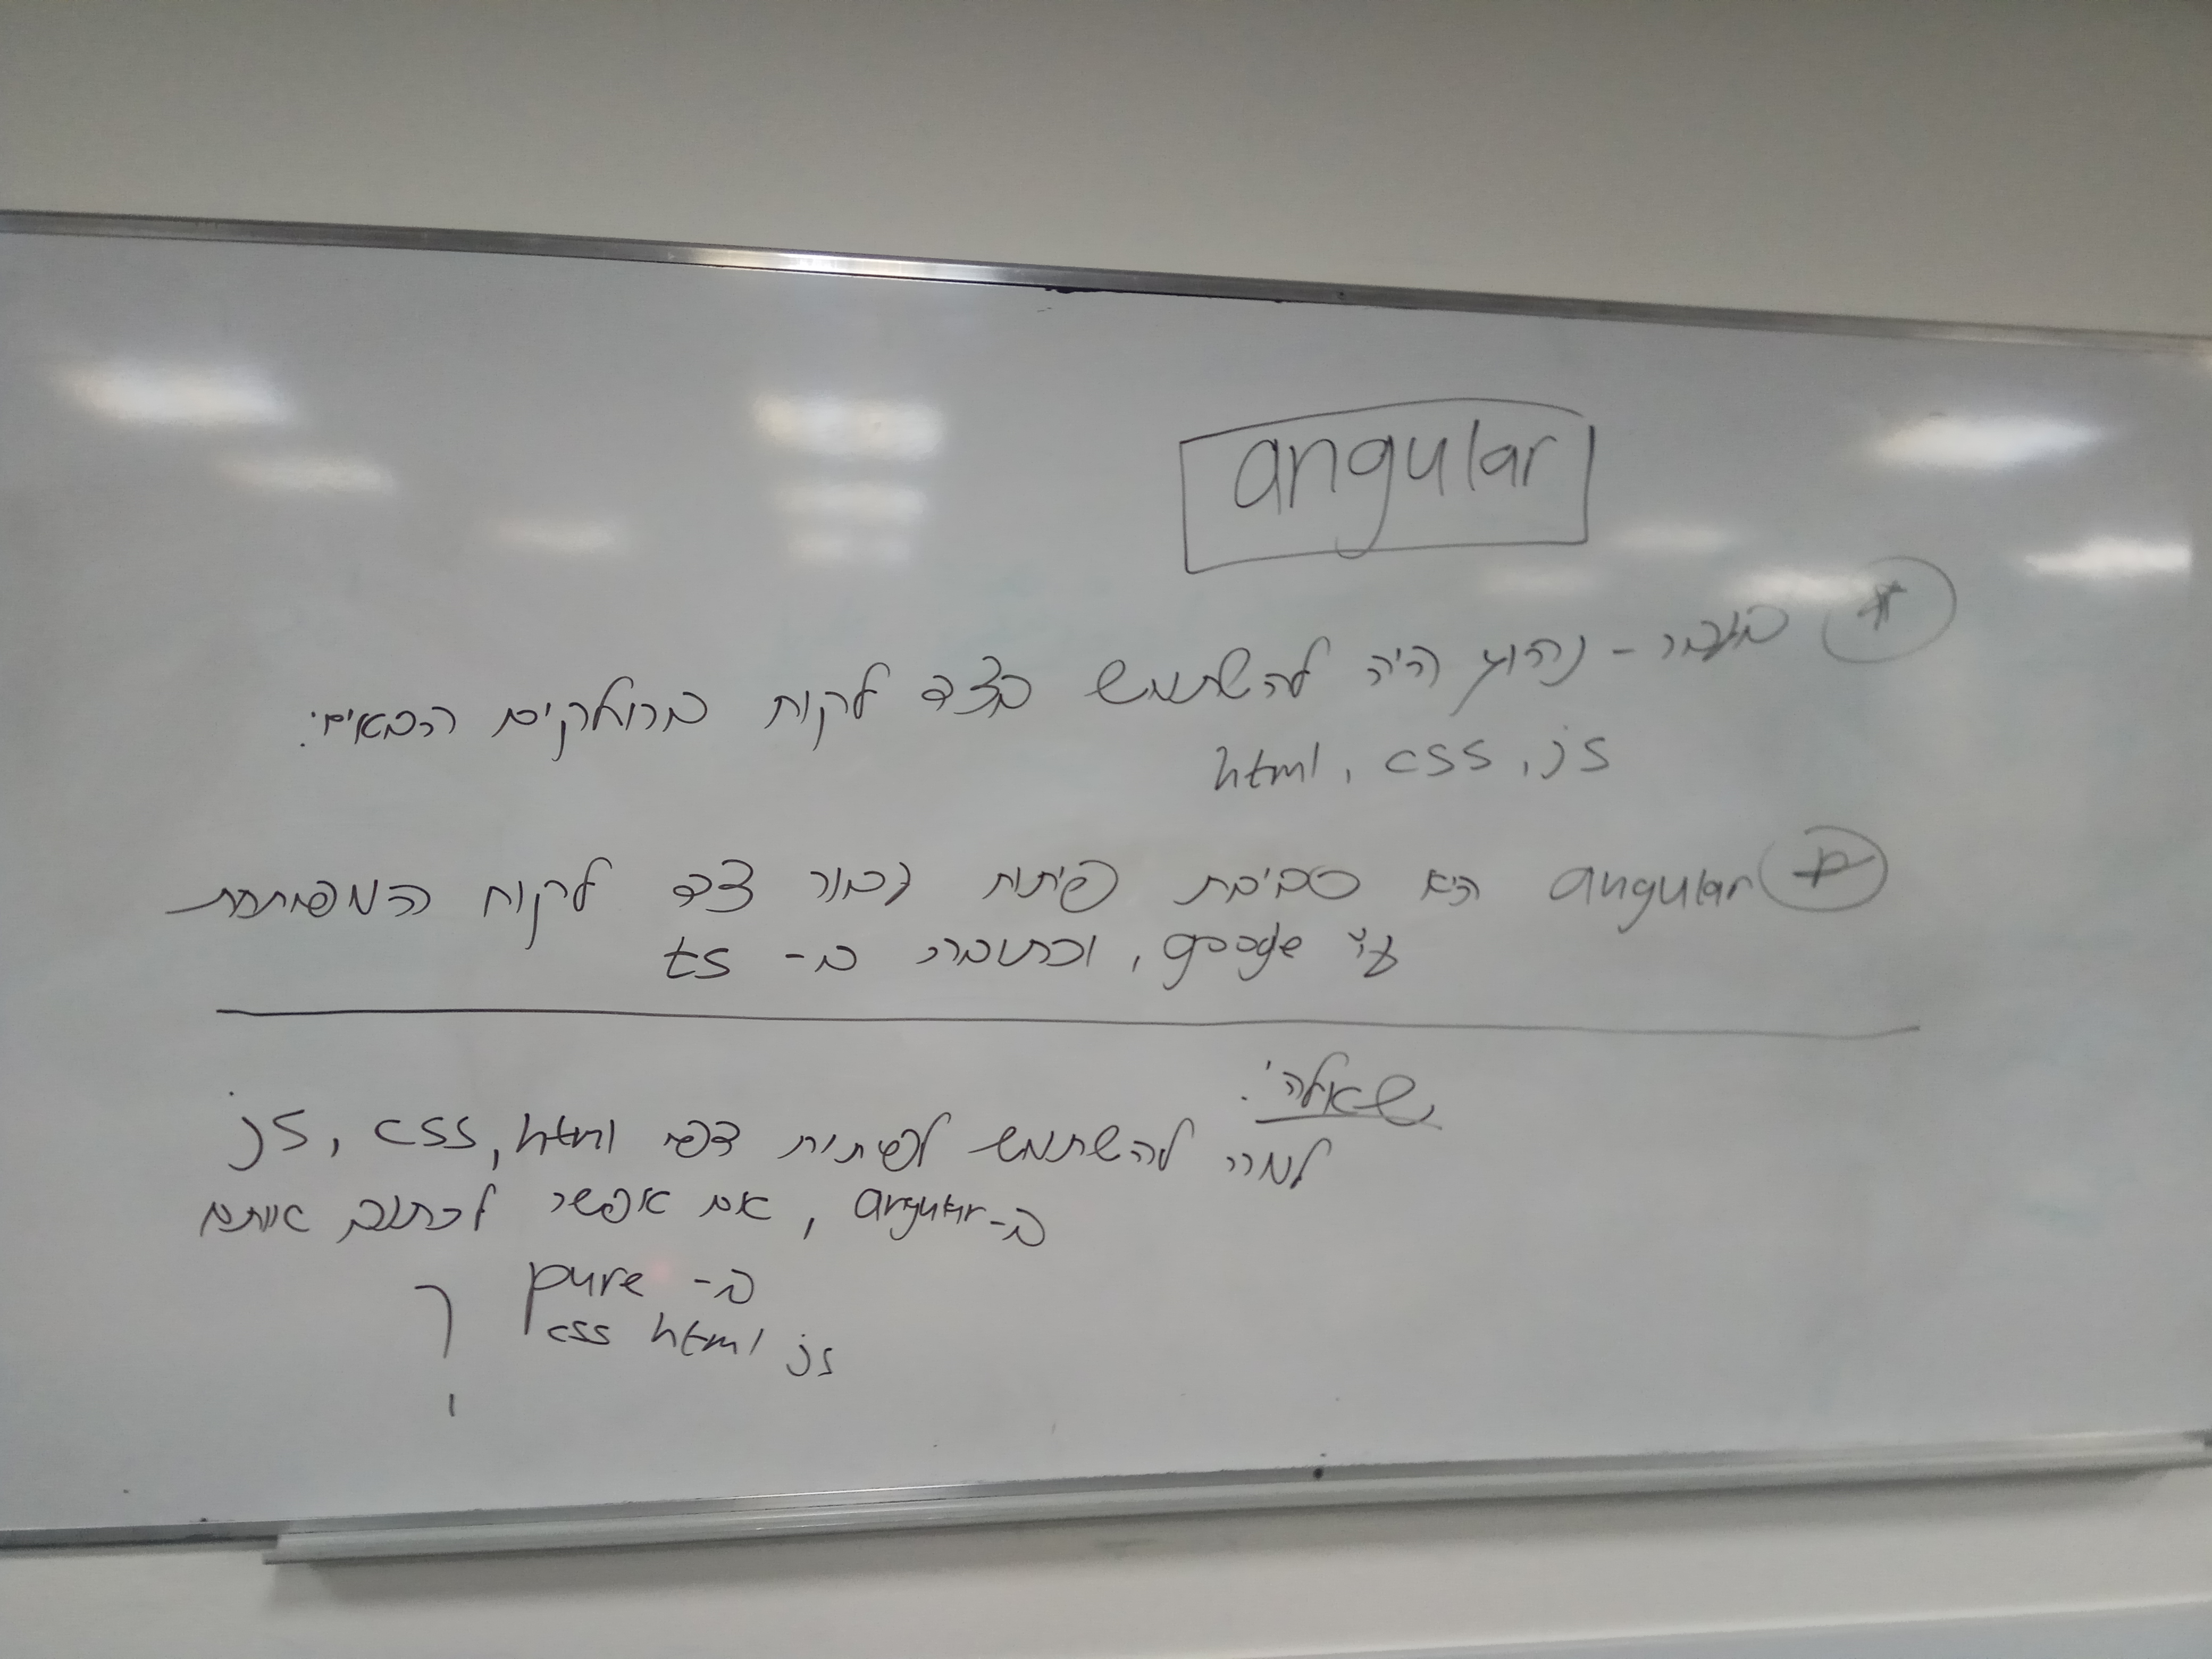 angular
* בעבר - נהוג היה להשתמש בצד לקוח בחלקים הבאים:
html, css, js
* angular היא סביבת פיתוח עבור צד לקוח המפותחת
ע"י google, וכתובה ב- ts
שאלה:
למה להשתמש לפיתוח דפי js, css, html
ב-angular, אם אפשר לכתוב אותם
ב- pure
css html js
?